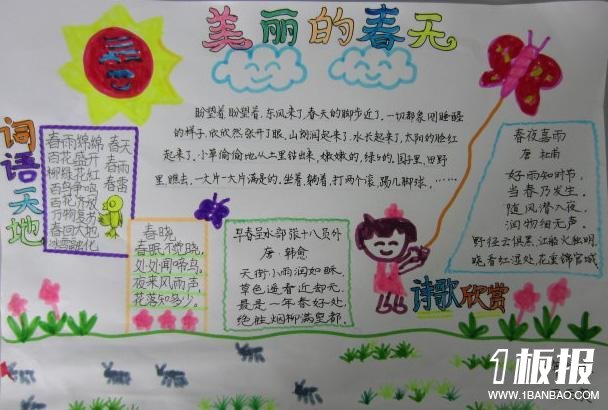 美丽的春天
盼望着,盼望着,东风来了,春天的脚步近了,一切都象刚睡醒
的样子,欣欣然,张开了眼,山朗润起来了,水长起来了,太阳的脸红
起来了,小草偷偷地从土里钻出来,嫩嫩的,绿绿的,园子里,田野
里,瞧去,一大片一大片满是的,坐着,躺着,打两个滚,踢几脚球,……
词语天地
春雨绵绵 春天
百花盛开 春雨
柳绿花红 春香
百鸟争鸣
百花齐放
万物复苏
春回大地
冰雪融化
春晓
春眠不觉晓,
处处闻啼鸟,
夜来风雨声,
花落知多少。
早春呈水部张十八员外
唐·韩愈
天街小雨润如酥,
草色遥看近却无.
最是一年春好处,
绝胜烟柳满皇都.
春夜喜雨
唐 杜甫
好雨知时节,
当春乃发生.
随风潜入夜,
润物细无声.
野径云俱黑,江船火独明.
晓看红湿处,花重锦官城
诗歌欣赏
1板报
WWW.1BANBAO.COM